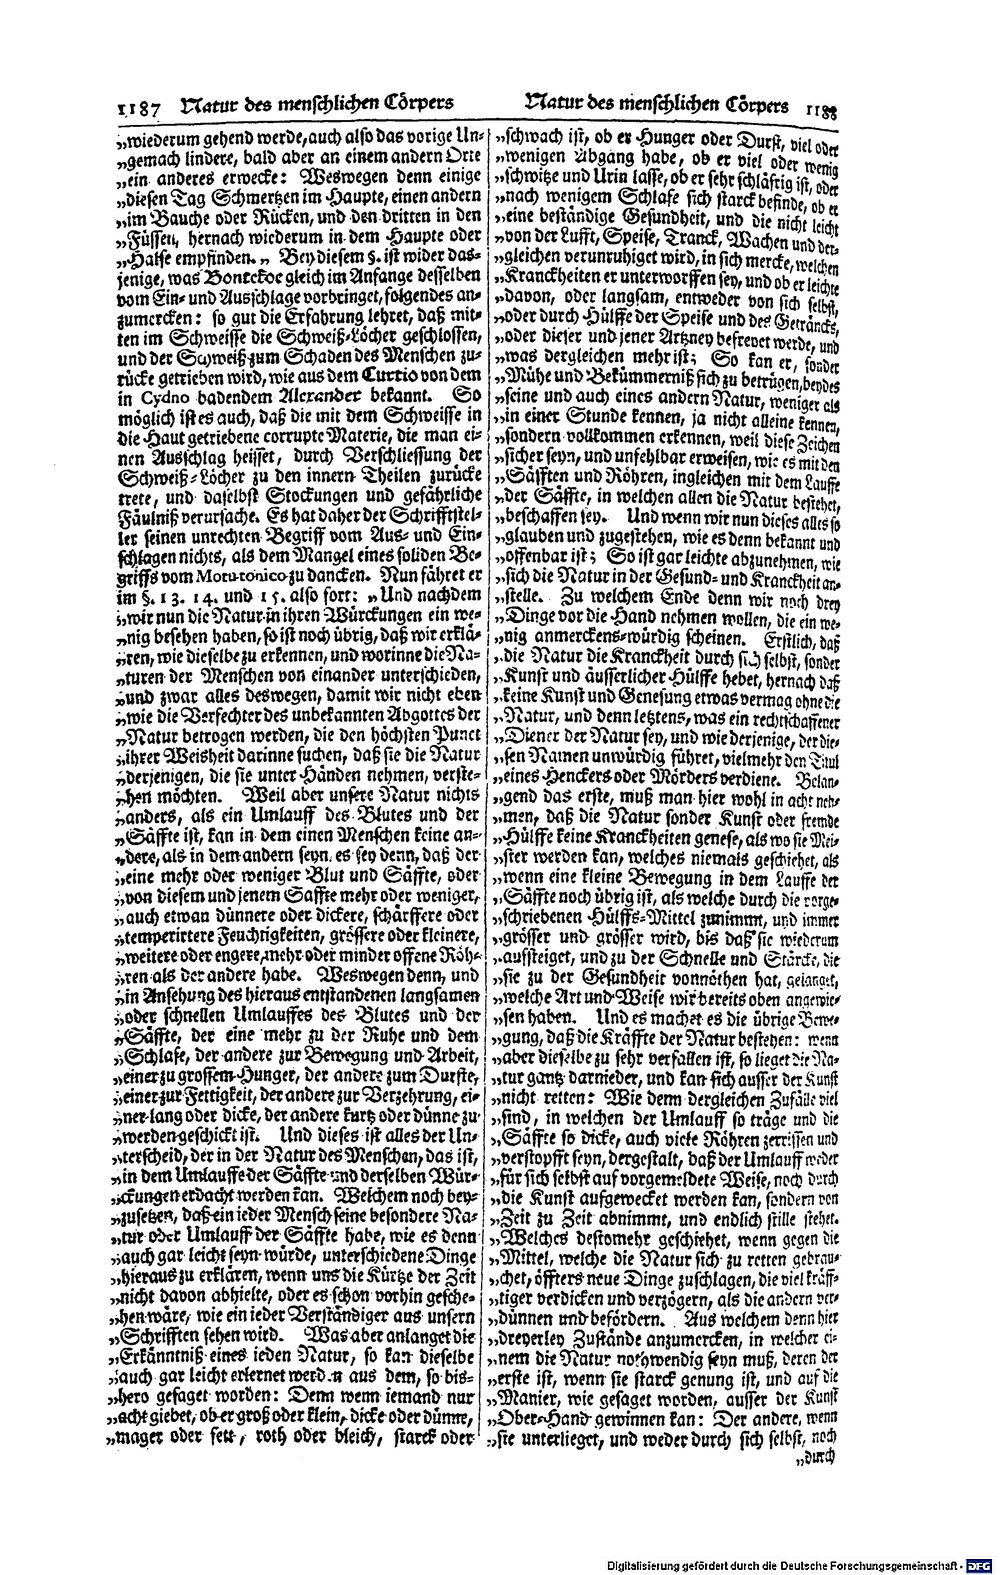 1187 Natur des menschlichen Cörpers
„wiederum gehend werde, auch also das vorige Un-
„gemach lindere, bald aber an einem andern Orte
„ein anderes erwecke: Weswegen denn einige
„diesen Tag Schmertzen im Haupte, einen andern
„im Bauche oder Rücken, und den dritten in den
„Füssen, hernach wiederum in dem Haupte oder
„Halse empfinden.„ Bey diesem §. ist wider das-
jenige, was Bontekoe gleich im Anfange desselben
vom Ein- und Ausschlage vorbringet, folgendes an-
zumercken: so gut die Erfahrung lehret, daß mit-
ten im Schweisse die Schweiß-Löcher geschlossen,
und der Schweiß zum Schaden des Menschen zu-
rücke getrieben wird, wie aus dem Curtio von dem
in Cydno badendem Alexander bekannt. So
möglich ist es auch, daß die mit dem Schweisse in
die Haut getriebene corrupte Materie, die man ei-
nen Ausschlag heisset, durch Verschliessung der
Schweiß-Löcher zu den innern Theilen zurücke
trete, und daselbst Stockungen und gefährliche
Fäulniß verursache. Es hat daher der Schrifftstel-
ler seinen unrechten Begriff vom Aus- und Ein-
schlagen nichts, als dem Mangel eines soliden Be-
griffs vom Motu tonico zu dancken. Nun fähret er
im §. 13. 14. und 15. also fort: „Und nachdem
„wir nun die Natur in ihren Würckungen ein we-
„nig besehen haben, so ist noch übrig, daß wir erklä-
„ren, wie dieselbe zu erkennen, und worinne die Na-
„turen der Menschen von einander unterschieden,
„und zwar alles deswegen, damit wir nicht eben
„wie die Verfechter des unbekannten Abgottes der
„Natur betrogen werden, die den höchsten Punct
„ihrer Weisheit darinne suchen, daß sie die Natur
„derjenigen, die sie unter Händen nehmen, verste-
„hen möchten. Weil aber unsere Natur nichts
„anders, als ein Umlauff des Blutes und der
„Säffte ist, kan in dem einen Menschen keine an-
„dere, als in dem andern seyn, es sey denn, daß der
„eine mehr oder weniger Blut und Säffte, oder
„von diesem und jenem Saffte mehr oder weniger,
„auch etwan dünnere oder dickere, schärffere oder
„temperirtere Feuchtigkeiten, grössere oder kleinere,
„weitere oder engere, mehr oder minder offene Röh-
„ren als der andere habe. Weswegen denn, und
„in Ansehung des hieraus entstandenen langsamen
„oder schnellen Umlauffes des Blutes und der
„Säffte, der eine mehr zu der Ruhe und dem
„Schlafe, der andere zur Bewegung und Arbeit,
„einer zu grossem Hunger, der andere zum Durste,
„einer zur Fettigkeit, der andere zur Verzehrung, ei-
„ner lang oder dicke, der andere kurtz oder dünne zu
„werden geschickt ist. Und dieses ist alles der Un-
„terscheid, der in der Natur des Menschen, das ist,
„in dem Umlauffe der Säffte und derselben Wür-
„ckungen erdacht werden kan. Welchem noch bey-
„zusetzen, daß ein ieder Mensch seine besondere Na-
„tur oder Umlauff der Säffte habe, wie es denn
„auch gar leicht seyn würde, unterschiedene Dinge
„hieraus zu erklären, wenn uns die Kürtze der Zeit
„nicht davon abhielte, oder es schon vorhin gesche-
„hen wäre, wie ein ieder Verständiger aus unsern
„Schrifften sehen wird. Was aber anlanget die
„Erkänntniß eines ieden Natur, so kan dieselbe
„auch gar leicht erlernet werden aus dem, so bis-
„hero gesaget worden: Denn wenn iemand nur
„acht giebet, ob er groß oder klein, dicke oder dünne,
„mager oder fett, roth oder bleich, starck oder
Natur des menschlichen Cörpers 1188
„schwach ist, ob er Hunger oder Durst, viel oder
„wenigen Abgang habe, ob er viel oder wenig
„schwitze und Urin lasse, ob er sehr schläfrig ist, oder
„nach wenigem Schlafe sich starck befinde, ob er
„eine beständige Gesundheit, und die nicht leicht
„von der Lufft, Speise, Tranck, Wachen und der-
„gleichen verunruhiget wird, in sich mercke, welchen
„Kranckheiten er unterworffen sey, und ob er leichte
„davon, oder langsam, entweder von sich selbst,
„oder durch Hülffe der Speise und des Geträncks,
„oder dieser und jener Artzney befreyet werde, und
„was dergleichen mehr ist; So kan er, sonder
„Mühe und Bekümmerniß sich zu betrügen, beydes
„seine und auch eines andern Natur, weniger als
„in einer Stunde kennen, ja nicht alleine kennen,
„sondern vollkommen erkennen, weil diese Zeichen
„sicher seyn, und unfehlbar erweisen, wie es mit den
„Säfften und Röhren, ingleichen mit dem Lauffe
„der Säffte, in welchen allen die Natur bestehet,
„beschaffen sey. Und wenn wir nun dieses alles so
„glauben und zugestehen, wie es denn bekannt und
„offenbar ist; So ist gar leichte abzunehmen, wie
„sich die Natur in der Gesund- und Kranckheit an-
„stelle. Zu welchem Ende denn wir noch drey
„Dinge vor die Hand nehmen wollen, die ein we-
„nig anmerckens-würdig scheinen. Erstlich, daß
„die Natur die Kranckheit durch sich selbst, sonder
„Kunst und äusserlicher Hülffe hebet, hernach daß
„keine Kunst und Genesung etwas vermag ohne die
„Natur, und denn letztens, was ein rechtschaffener
„Diener der Natur sey, und wie derjenige, der die-
„sen Namen unwürdig führet, vielmehr den Titul
„eines Henckers oder Mörders verdiene. Belan-
„gend das erste, muß man hier wohl in acht neh-
„men, daß die Natur sonder Kunst oder fremde
„Hülffe keine Kranckheiten genese, als wo sie Mei-
„ster werden kan, welches niemals geschiehet, als
„wenn eine kleine Bewegung in dem Lauffe der
„Säffte noch übrig ist, als welche durch die vorge-
„schriebenen Hülffs-Mittel zunimmt, und immer
„grösser und grösser wird, bis daß sie wiederum
„aufsteiget, und zu der Schnelle und Stärcke, die
„sie zu der Gesundheit vonnöthen hat, gelanget,
„welche Art und Weise wir bereits oben angewie-
„sen haben. Und es machet es die übrige Bewe-
„gung, daß die Kräffte der Natur bestehen: wenn
„aber dieselbe zu sehr verfallen ist, so lieget die Na-
„tur gantz darnieder, und kan sich ausser der Kunst
„nicht retten: Wie denn dergleichen Zufälle viel
„sind, in welchen der Umlauff so träge und die
„Säffte so dicke, auch viele Röhren zerrissen und
„verstopfft seyn, dergestalt, daß der Umlauff weder
„für sich selbst auf vorgemeldete Weise, noch durch
„die Kunst aufgewecket werden kan, sondern von
„Zeit zu Zeit abnimmt, und endlich stille stehet.
„Welches destomehr geschiehet, wenn gegen die
„Mittel, welche die Natur sich zu retten gebrau-
„chet, öffters neue Dinge zuschlagen, die viel kräff-
„tiger verdicken und verzögern, als die andern ver-
„dünnen und befördern. Aus welchem denn hier
„dreyerley Zustände anzumercken, in welcher ei-
„nem die Natur nothwendig seyn muß, deren der
„erste ist, wenn sie starck genung ist, und auf die
„Manier, wie gesaget worden, ausser der Kunst
„Ober-Hand gewinnen kan: Der andere, wenn
„sie unterlieget, und weder durch sich selbst, noch
„durch
Digitalisierung gefördert durch die Deutsche Forschungsgemeinschaft - DFG